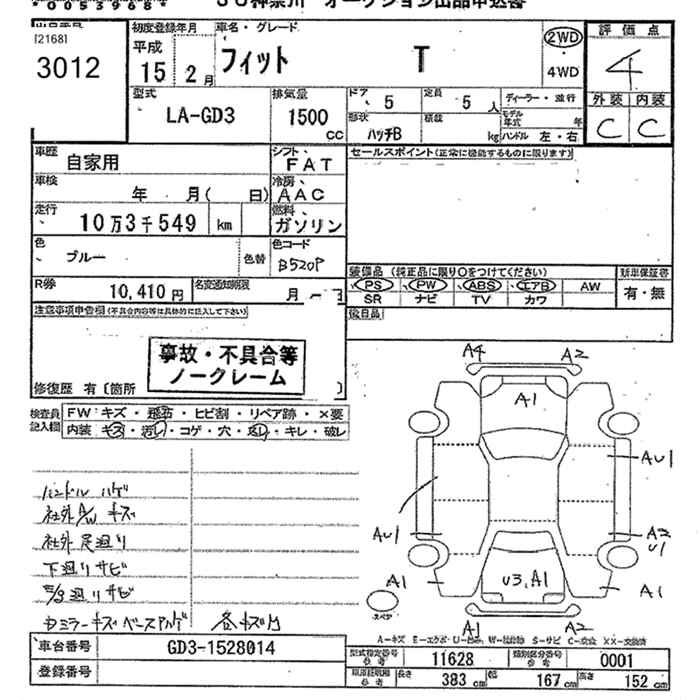 *00539684*
JU神奈川 オークション出品申込書
[2168]
3012
初度登録年月
平成
15年 2月
車名・グレード
フィット T
2WD
・
4WD
評価点
4
外装 内装
C C
型式
LA-GD3
排気量
1500
cc
ドア
5
定員
5人
ディーラー・並行
形状
ハッチB
積載
kg
モデル年式 年
ハンドル 左・右
車歴
自家用
シフト
FAT
セールスポイント(正常に機能するものに限ります)
車検
年 月( 日)
冷房
AAC
走行
10万3千549 km
燃料
ガソリン
色
ブルー
色替
色コード
B520P
装備品 (純正品に限り○をつけてください)
新車保証書
PS PW ABS エアB AW
有・無
SR ナビ TV カワ
R券
10,410円
名変通知期限
月 日
後日品
注意事項申告欄(不具合内容等は具体的に記入して下さい)
事故・不具合等
ノークレーム
修復歴 有〔箇所
検査員
記入欄
FW:キズ・飛石・ヒビ割・リペア跡・×要
内装 キズ・汚レ・コゲ・穴・スレ・キレ・破レ
ハンドル ハゲ
社外A/W キズ
社外足廻り
下廻りサビ
E/g廻りサビ
各キズ凹
A4 A2
A1
AU1
AU1
A2
U1
A1
U3,A1
A1
スペア
A1 A2
A-キズ E-エクボ U-凹み W-補修跡 S-サビ C-腐食 XX-交換済
車台番号
GD3-1528014
登録番号
型式指定番号
参考
11628
類別区分番号
参考
0001
車庫証明用
参考
長さ
383 cm
幅
167 cm
高さ
152 cm